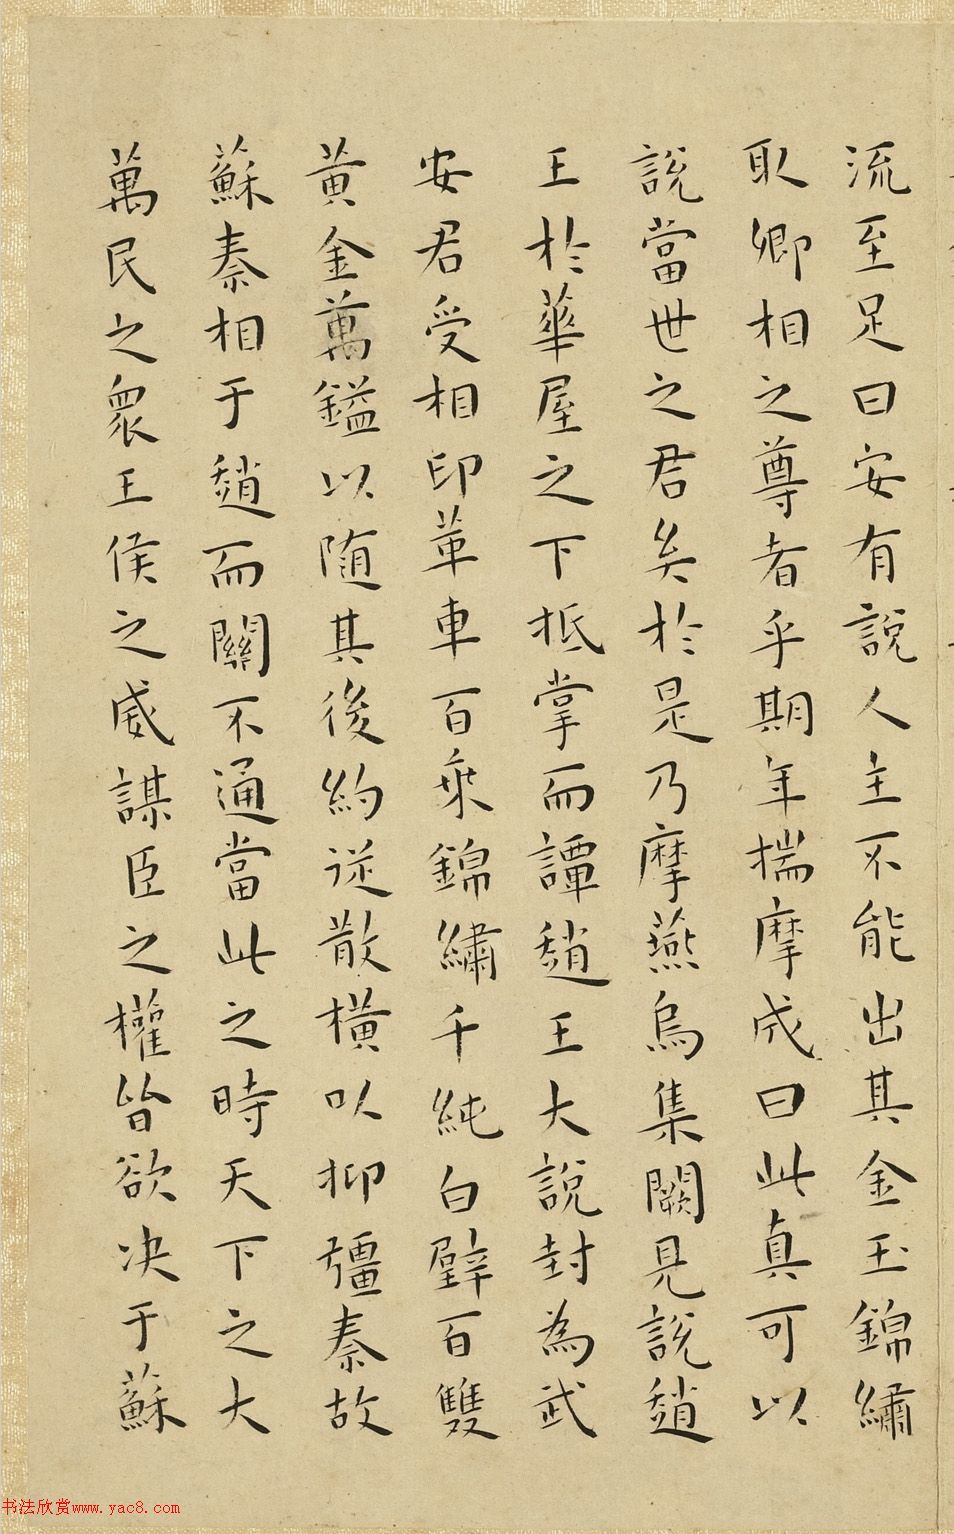 流至足曰安有說人主不能出其金玉錦繡
取卿相之尊者乎期年揣摩成曰此真可以
說當世之君矣於是乃摩燕烏集闕見說趙
王於華屋之下抵掌而譚趙王大說封為武
安君受相印革車百乗錦繡千純白壁百雙
黃金萬鎰以隨其後約從散橫以抑彊秦故
蘇秦相于趙而關不通當此之時天下之大
萬民之眾王侯之威謀臣之權皆欲决于蘇
书法欣赏www.yac8.com